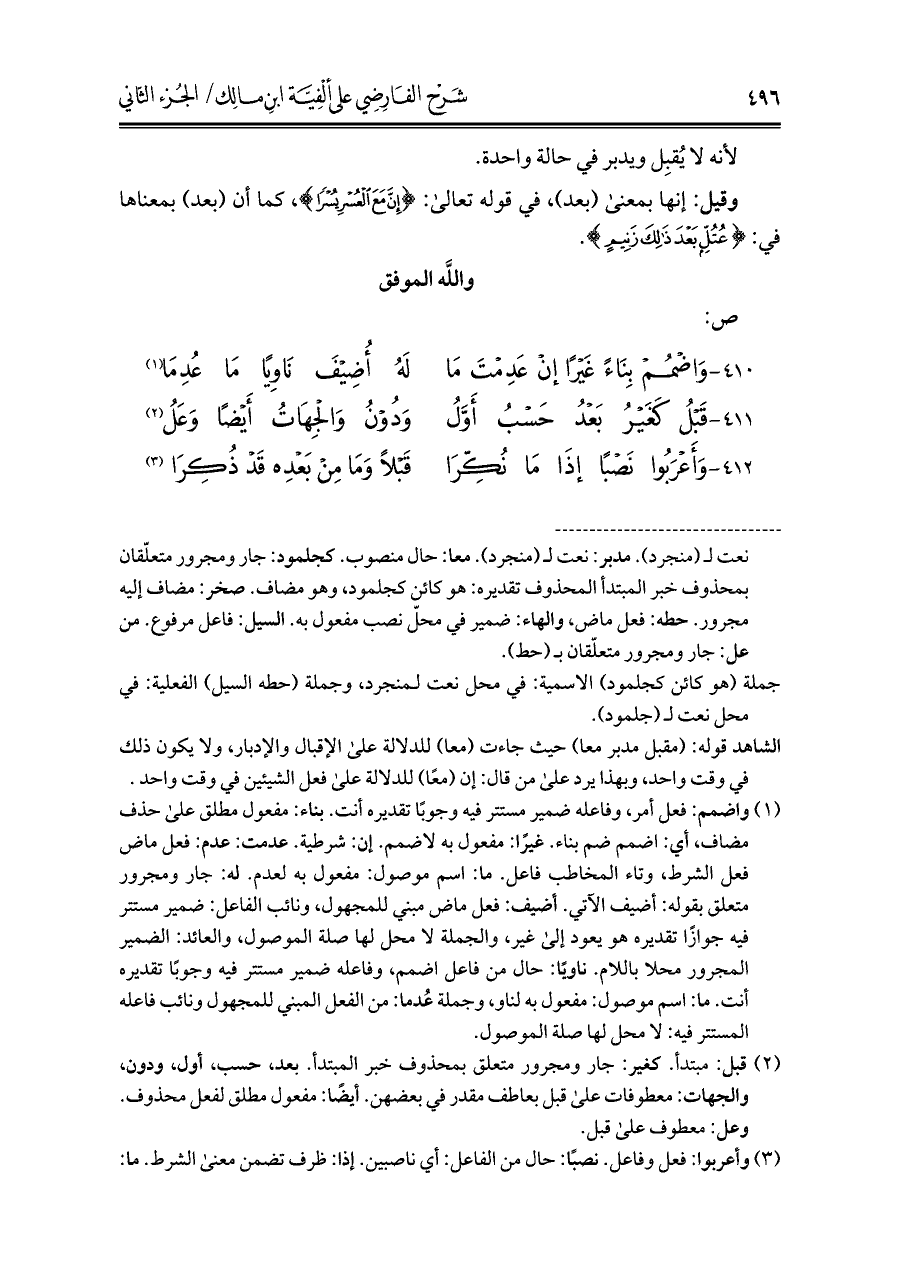 ٤٩٦ شَرْح الفَارِضِي على ألْفِيَّة ابنِ مَالِك/ الجُزء الثاني
لأنه لا يُقبِل ويدبر في حالة واحدة.
وقيل: إنها بمعنىٰ (بعد)، في قوله تعالىٰ: ﴿إِنَّ مَعَ ٱلْعُسْرِ يُسْرًا﴾، كما أن (بعد) بمعناها
في: ﴿عُتُلٍّۭ بَعْدَ ذَٰلِكَ زَنِيمٍ﴾.
واللَّه الموفق
ص:
٤١٠-وَاضْمُمْ بِنَاءً غَيْرًا إنْ عَدِمْتَ مَا لَهُ أُضِيْفَ نَاوِيًا مَا عُدِمَا(١)
٤١١-قَبْلُ كَغَيْرُ بَعْدُ حَسْبُ أَوَّلُ وَدُوْنُ وَالْجِهَاتُ أَيْضًا وَعَلُ(٢)
٤١٢-وَأَعْرَبُوا نَصْبًا إذَا مَا نُكِّرَا قَبْلاً وَمَا مِنْ بَعْدِه قَدْ ذُكِرَا (٣)
نعت لـ (منجرد). مدبر: نعت لـ (منجرد). معا: حال منصوب. كجلمود: جار ومجرور متعلّقان
بمحذوف خبر المبتدأ المحذوف تقديره: هو كائن كجلمود، وهو مضاف. صخر: مضاف إليه
مجرور. حطه: فعل ماض، والهاء: ضمير في محلّ نصب مفعول به. السيل: فاعل مرفوع. من
عل: جار ومجرور متعلّقان بـ (حط).
جملة (هو كائن كجلمود) الاسمية: في محل نعت لـمنجرد، وجملة (حطه السيل) الفعلية: في
محل نعت لـ (جلمود).
الشاهد قوله: (مقبل مدبر معا) حيث جاءت (معا) للدلالة علىٰ الإقبال والإدبار، ولا يكون ذلك
في وقت واحد، وبهذا يرد علىٰ من قال: إن (معًا) للدلالة علىٰ فعل الشيئين في وقت واحد .
(١) واضمم: فعل أمر، وفاعله ضمير مستتر فيه وجوبًا تقديره أنت. بناء: مفعول مطلق علىٰ حذف
مضاف، أي: اضمم ضم بناء. غيرًا: مفعول به لاضمم. إن: شرطية. عدمت: عدم: فعل ماض
فعل الشرط، وتاء المخاطب فاعل. ما: اسم موصول: مفعول به لعدم. له: جار ومجرور
متعلق بقوله: أضيف الآتي. أضيف: فعل ماض مبني للمجهول، ونائب الفاعل: ضمير مستتر
فيه جوازًا تقديره هو يعود إلىٰ غير، والجملة لا محل لها صلة الموصول، والعائد: الضمير
المجرور محلا باللام. ناويًا: حال من فاعل اضمم، وفاعله ضمير مستتر فيه وجوبًا تقديره
أنت. ما: اسم موصول: مفعول به لناو، وجملة عُدما: من الفعل المبني للمجهول ونائب فاعله
المستتر فيه: لا محل لها صلة الموصول.
(٢) قبل: مبتدأ. كغير: جار ومجرور متعلق بمحذوف خبر المبتدأ. بعد، حسب، أول، ودون،
والجهات: معطوفات علىٰ قبل بعاطف مقدر في بعضهن. أيضًا: مفعول مطلق لفعل محذوف.
وعل: معطوف علىٰ قبل.
(٣) وأعربوا: فعل وفاعل. نصبًا: حال من الفاعل: أي ناصبين. إذا: ظرف تضمن معنىٰ الشرط. ما: